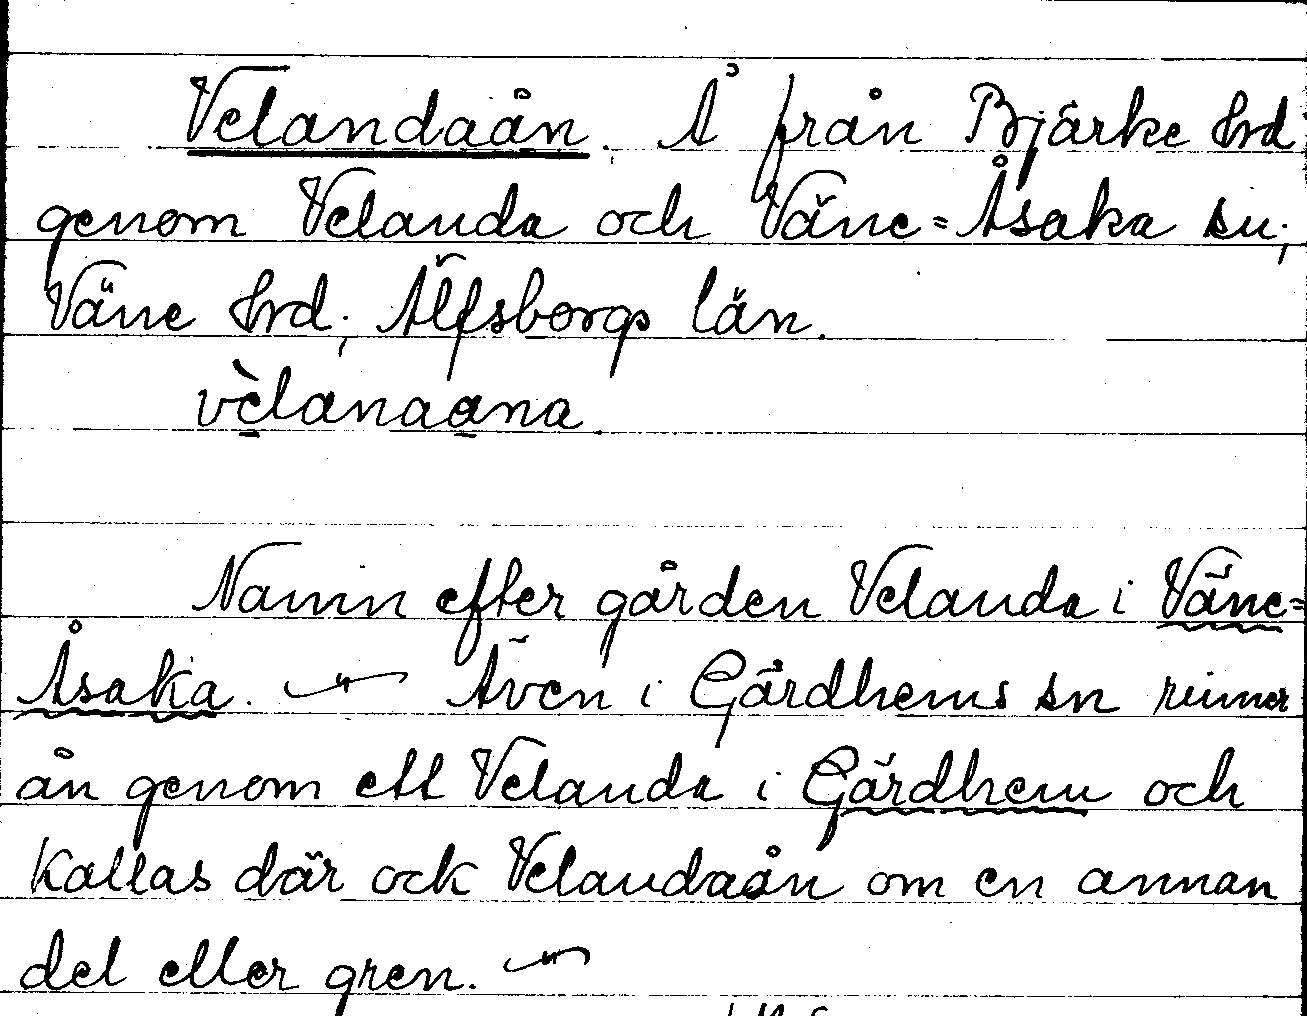 Velandaån. Å från Bjärke hrd
genom Velanda och Väne=Åsaka sn;
Väne hrd; Älfsborgs län.
vèlanaana
Namn efter gården Velanda i Väne=
Åsaka. — " — Även i Gärdhems sn rinner
ån genom ett Velanda i Gärdhem och
kallas där ock Velandaån om en annan
del eller gren. — " —